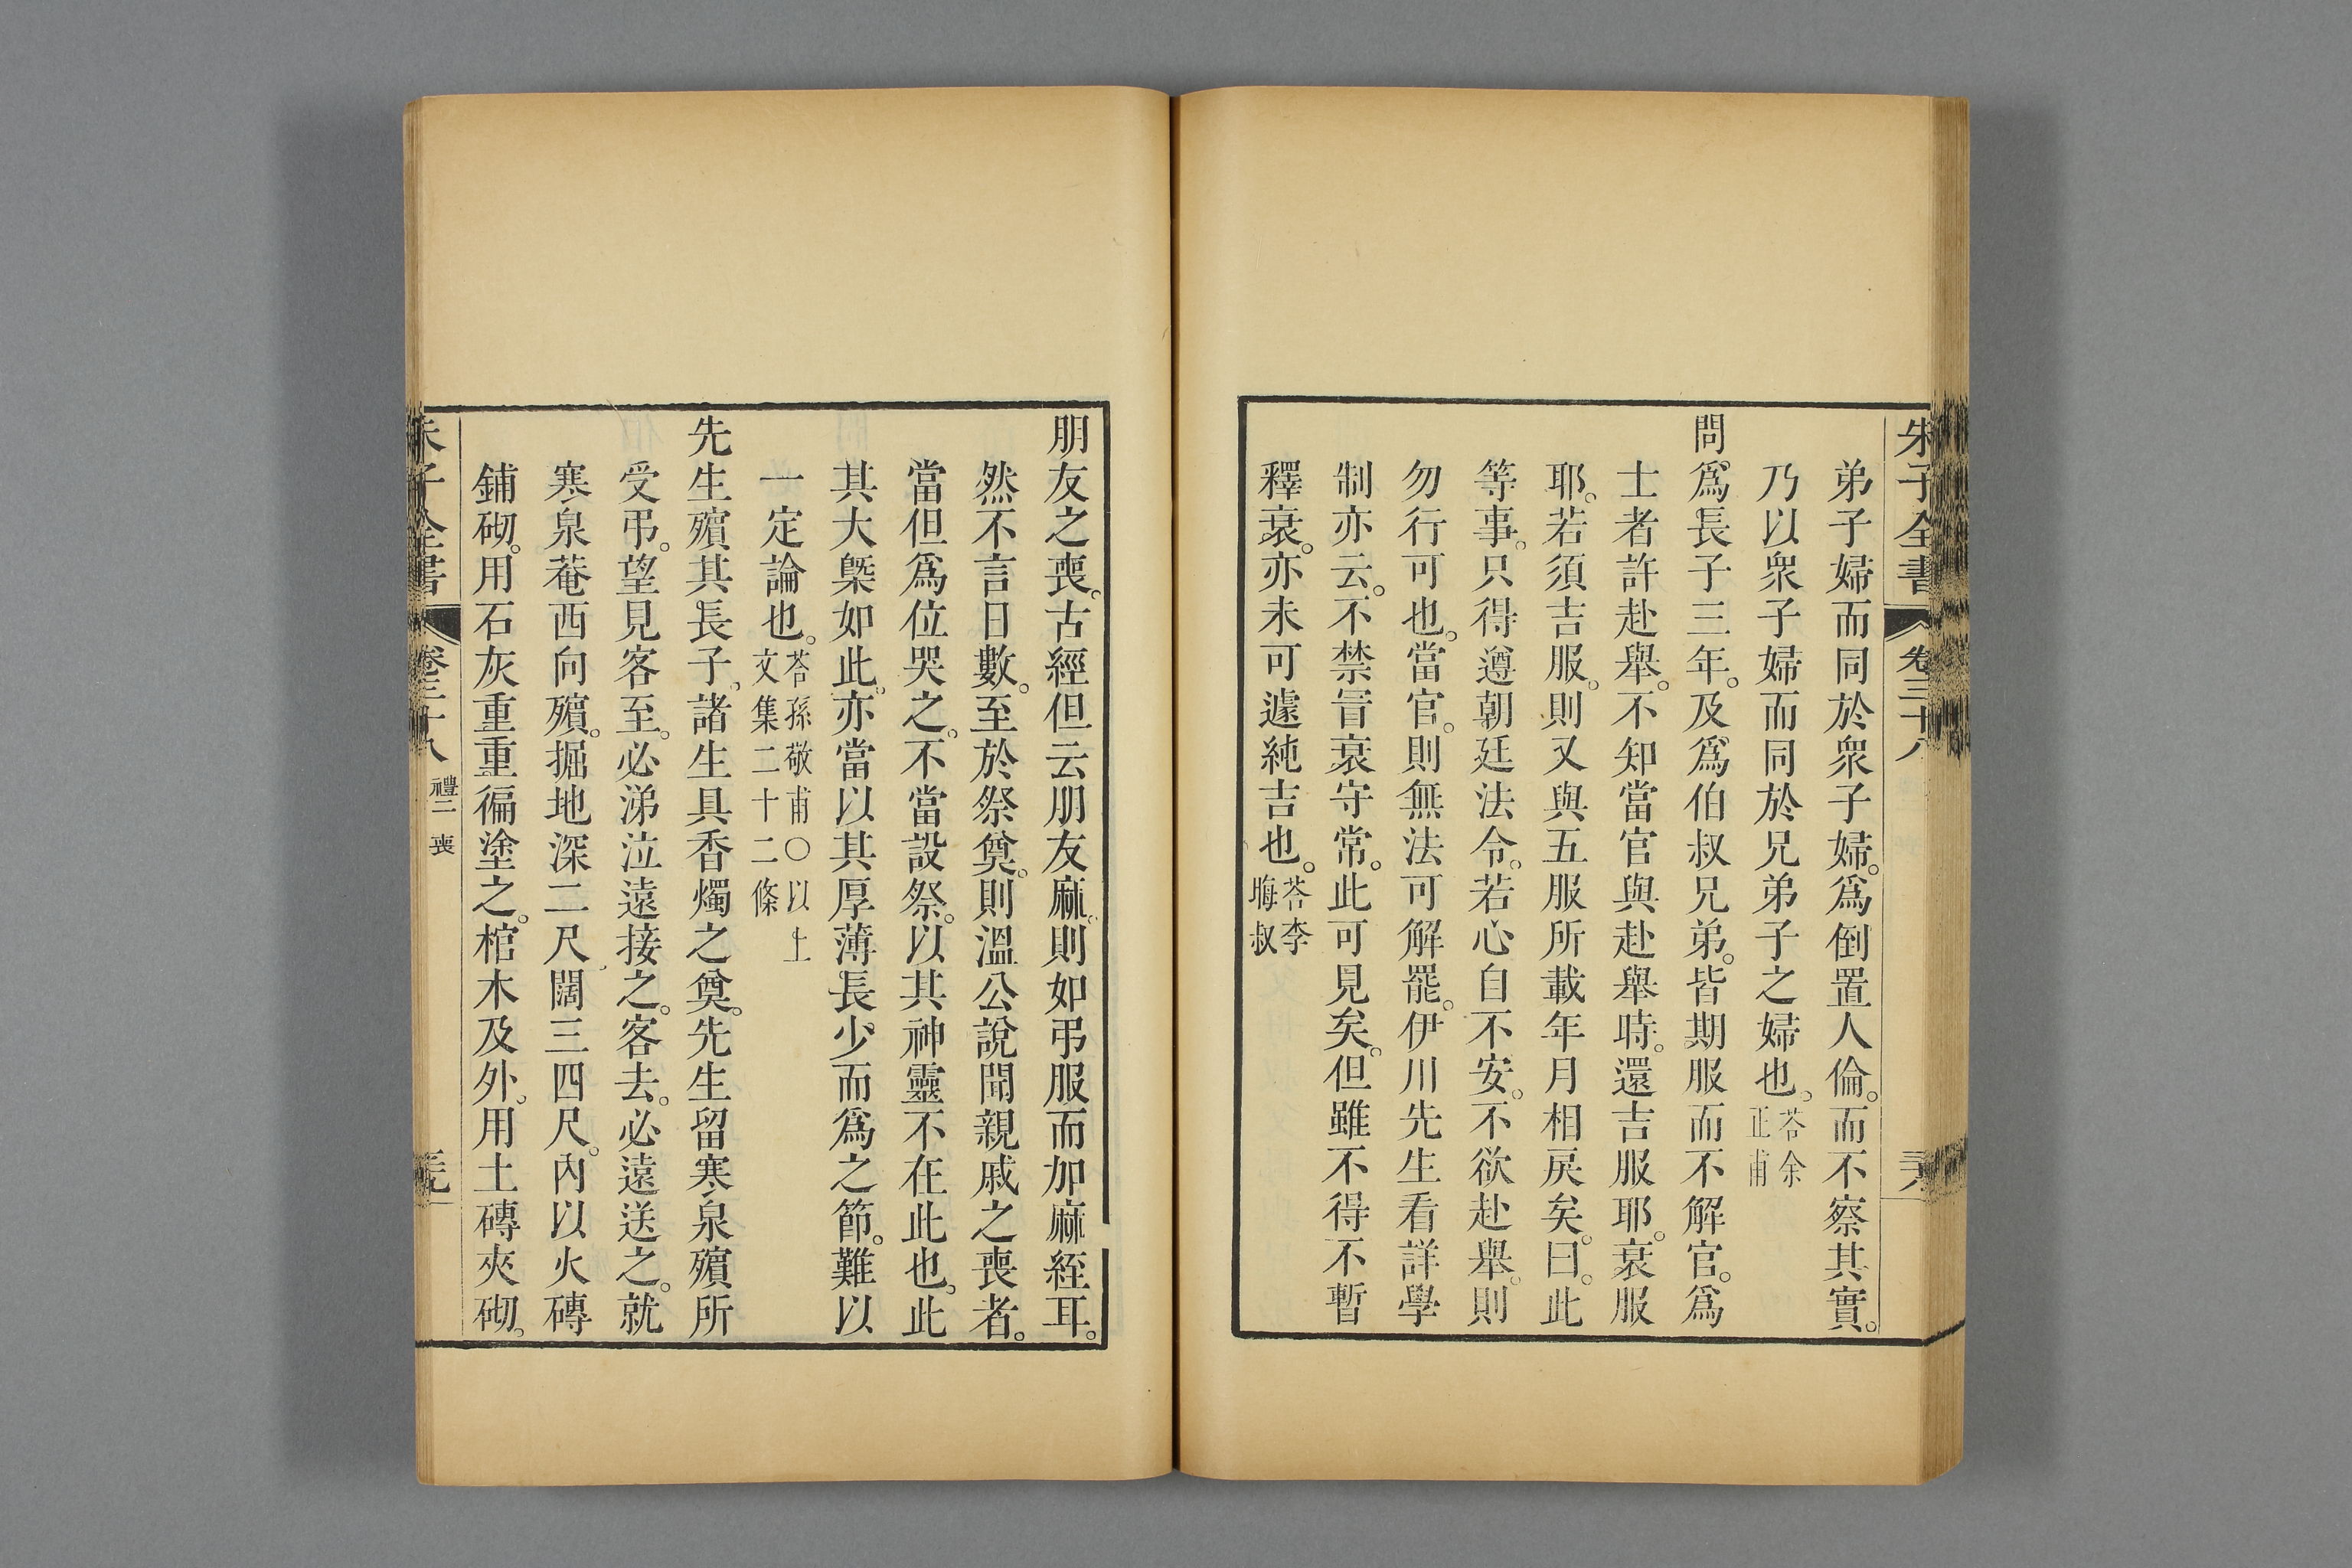 朱子全書 卷三十八
弟子婦而同於衆子婦。爲倒置人倫。而不察其實。
乃以衆子婦而同於兄弟子之婦也。荅余正甫
問。爲長子三年。及爲伯叔兄弟。皆期服而不解官。爲
士者許赴舉。不知當官與赴舉時。還吉服耶。衰服
耶。若須吉服。則又與五服所載年月相戾矣。曰。此
等事。只得遵朝廷法令。若心自不安。不欲赴舉。則
勿行可也。當官。則無法可解罷。伊川先生看詳學
制亦云。不禁冒衰守常。此可見矣。但雖不得不暫
釋衰。亦未可遽純吉也。荅李晦叔
朋友之喪。古經但云朋友麻。則如弔服而加麻絰耳。
然不言日數。至於祭奠。則溫公說聞親戚之喪者。
當但爲位哭之。不當設祭。以其神靈不在此也。此
其大槩如此。亦當以其厚薄長少而爲之節。難以
一定論也。荅孫敬甫○以上文集二十二條
先生殯其長子。諸生具香燭之奠。先生留寒泉殯所
受弔。望見客至。必涕泣遠接之。客去。必遠送之。就
寒泉菴西向殯。掘地深二尺。闊三四尺。內以火磚
鋪砌。用石灰重重徧塗之。棺木及外。用土磚夾砌。
朱子全書 卷三十八 禮二 喪